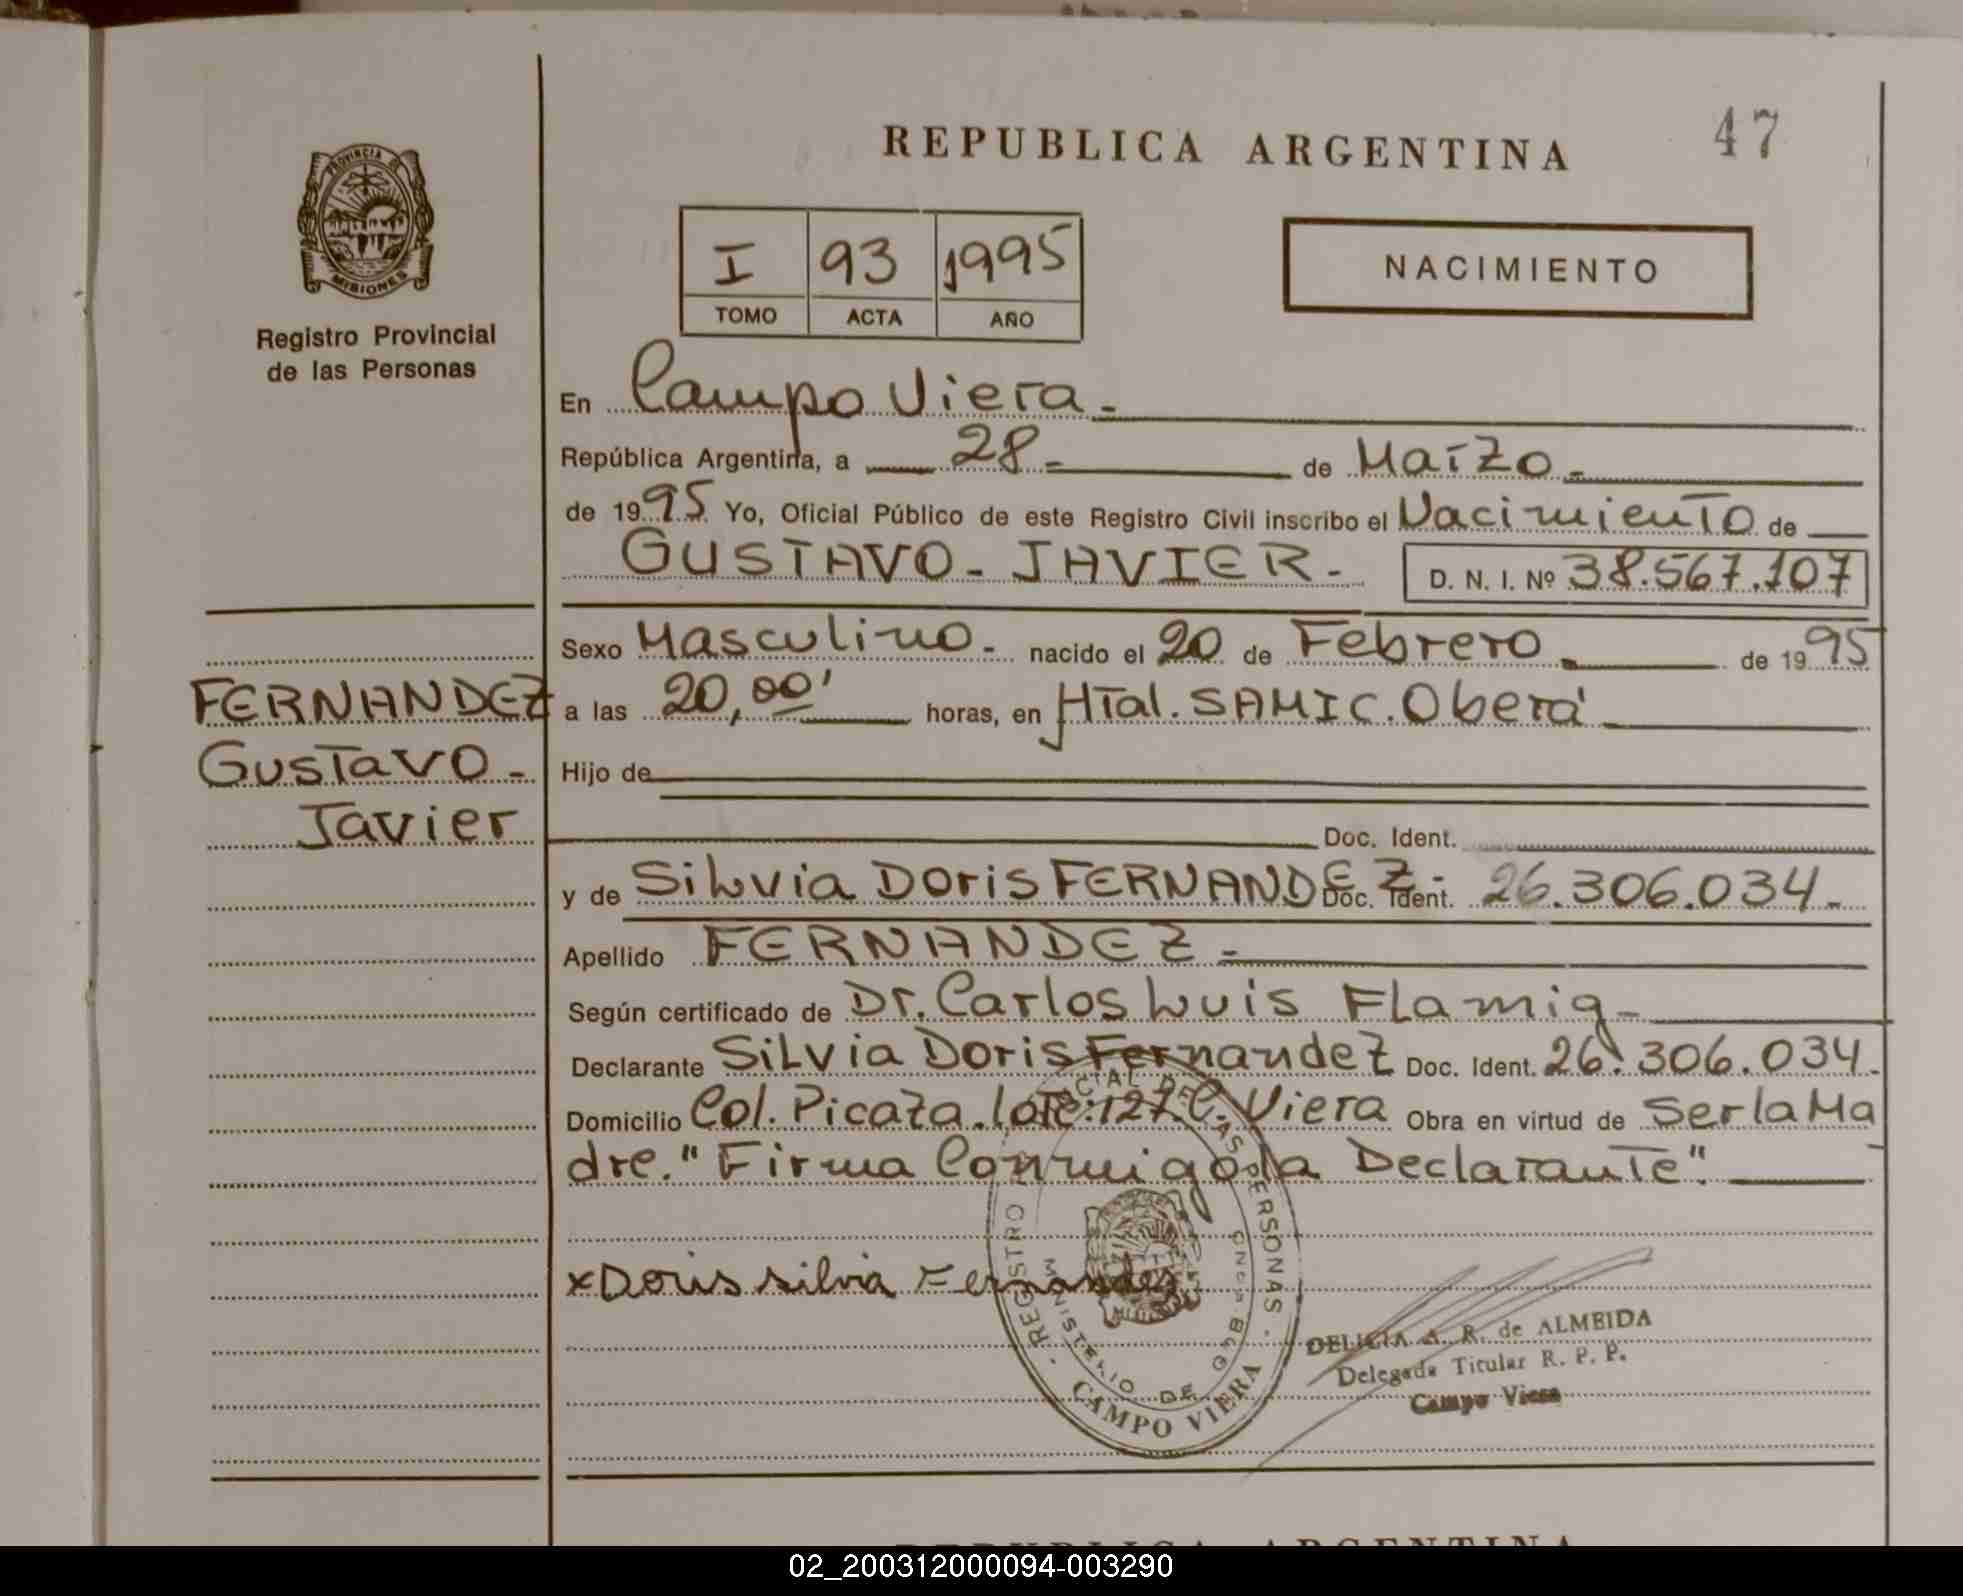 REPUBLICA ARGENTINA
47
PROVINCIA DE
MISIONES
Registro Provincial
de las Personas
I 93 1995
TOMO ACTA AÑO
NACIMIENTO
En Campo Viera -
República Argentina, a 28 - de Marzo -
de 1995 Yo, Oficial Público de este Registro Civil inscribo el Nacimiento de
GUSTAVO - JAVIER - D. N. I. Nº 38.567.107
Sexo Masculino - nacido el 20 de Febrero de 1995
FERNANDEZ
Gustavo -
Javier
a las 20,00' horas, en Htal. SAMIC. Oberá
Hijo de
Doc. Ident.
y de Silvia Doris FERNANDEZ - Doc. Ident. 26.306.034 -
Apellido FERNANDEZ -
Según certificado de Dr. Carlos Luis Flamig -
Declarante Silvia Doris Fernandez Doc. Ident. 26.306.034.
Domicilio Col. Picaza. lote: 127 C. Viera Obra en virtud de Ser la Ma
dre. "Firma Conmigo la Declarante".
x Doris silvia Fernandez
REGISTRO DE LAS PERSONAS
MINISTERIO DE GOB
CAMPO VIERA
DELICIA A. R. de ALMEIDA
Delegada Titular R. P. P.
Campo Viera
REPUBLICA ARGENTINA
02_200312000094-003290